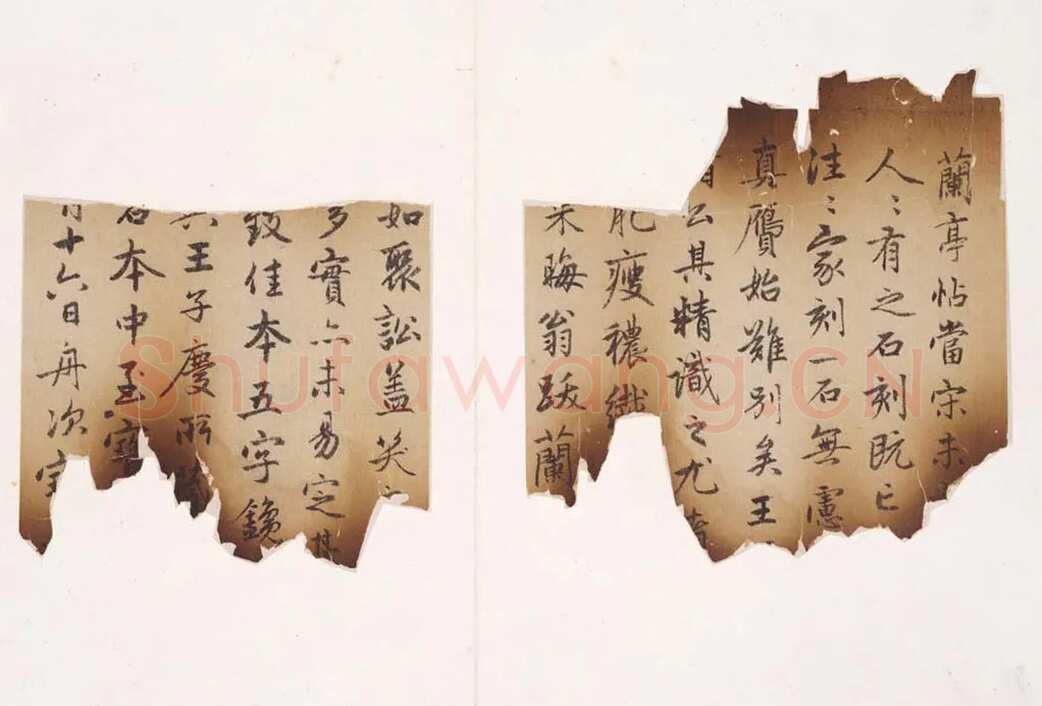 蘭亭帖當宋未
人〻有之石刻既亡
往〻家刻一石無慮
真贋始難別矣王
公其精識之尤
肥瘦穠纖
朱晦翁跋蘭
如聚訟蓋笑
多實亦未易定其
致佳本五字鑱
與王子慶所藏
石本中至寶
月十六日舟次
Shufawang.CN